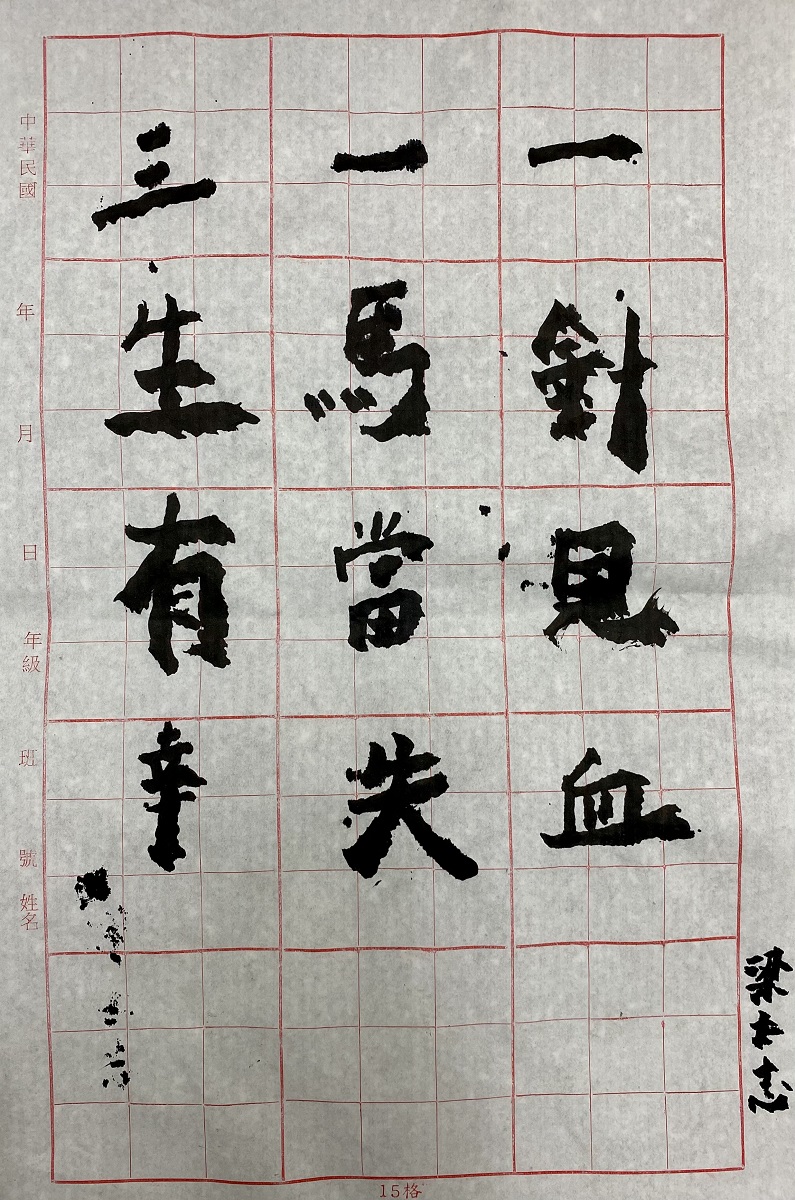 一針見血
一馬當失
三生有幸
中華民國 年 月 日 年級 班 號 姓名
15格